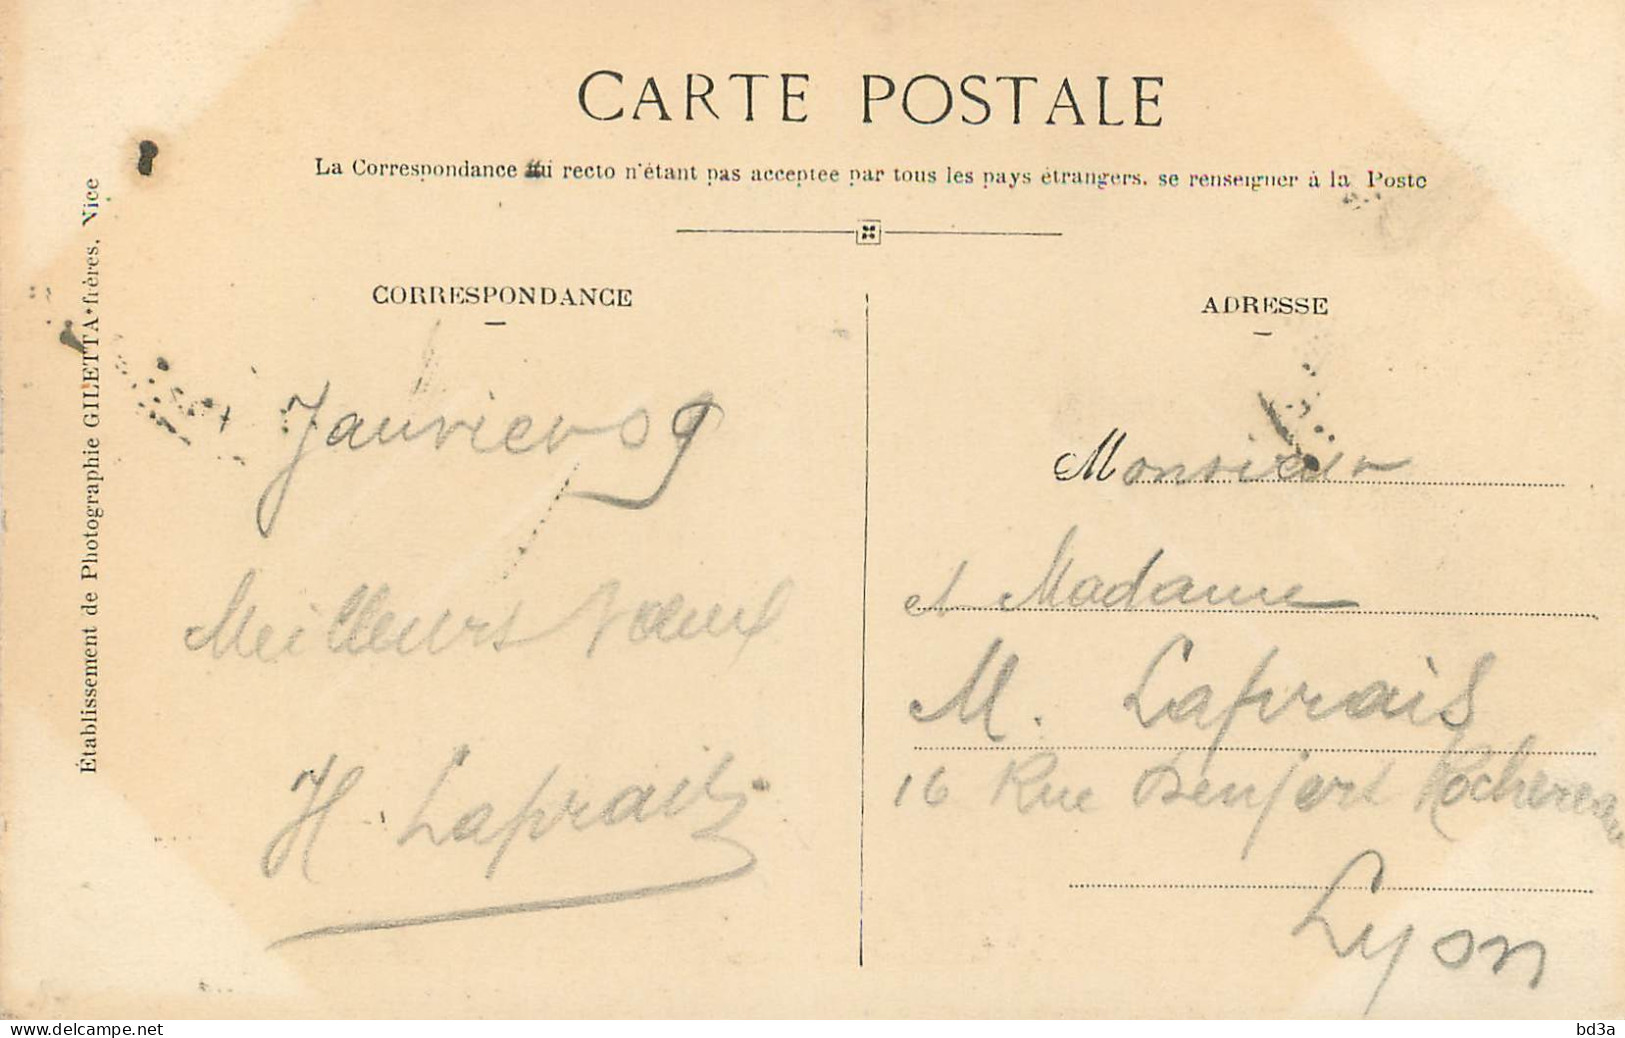 CARTE POSTALE
La Correspondance au recto n'étant pas acceptee par tous les pays étrangers, se renseigner à la Poste
Établissement de Photographie GILETTA frères, Nice
CORRESPONDANCE
Janvier 09
Meilleurs Vœux
H. Laprais
ADRESSE
Monsieur
et Madame
M. Laprais
16 Rue Denfert Rochereau
Lyon
delcampe.net
bd3a